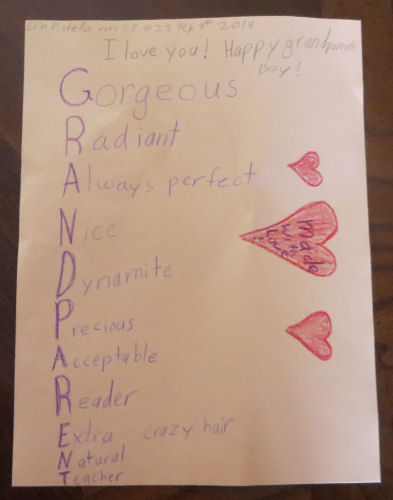 Erin Pistello rm 37 # 23 Sep 9th 2019
I love you! Happy grandparents
Day!
Gorgeous
Radiant
Always perfect
Nice
Dynamite
Precious
Acceptable
Reader
Extra crazy hair
Natural
Teacher
made
with
Love
!